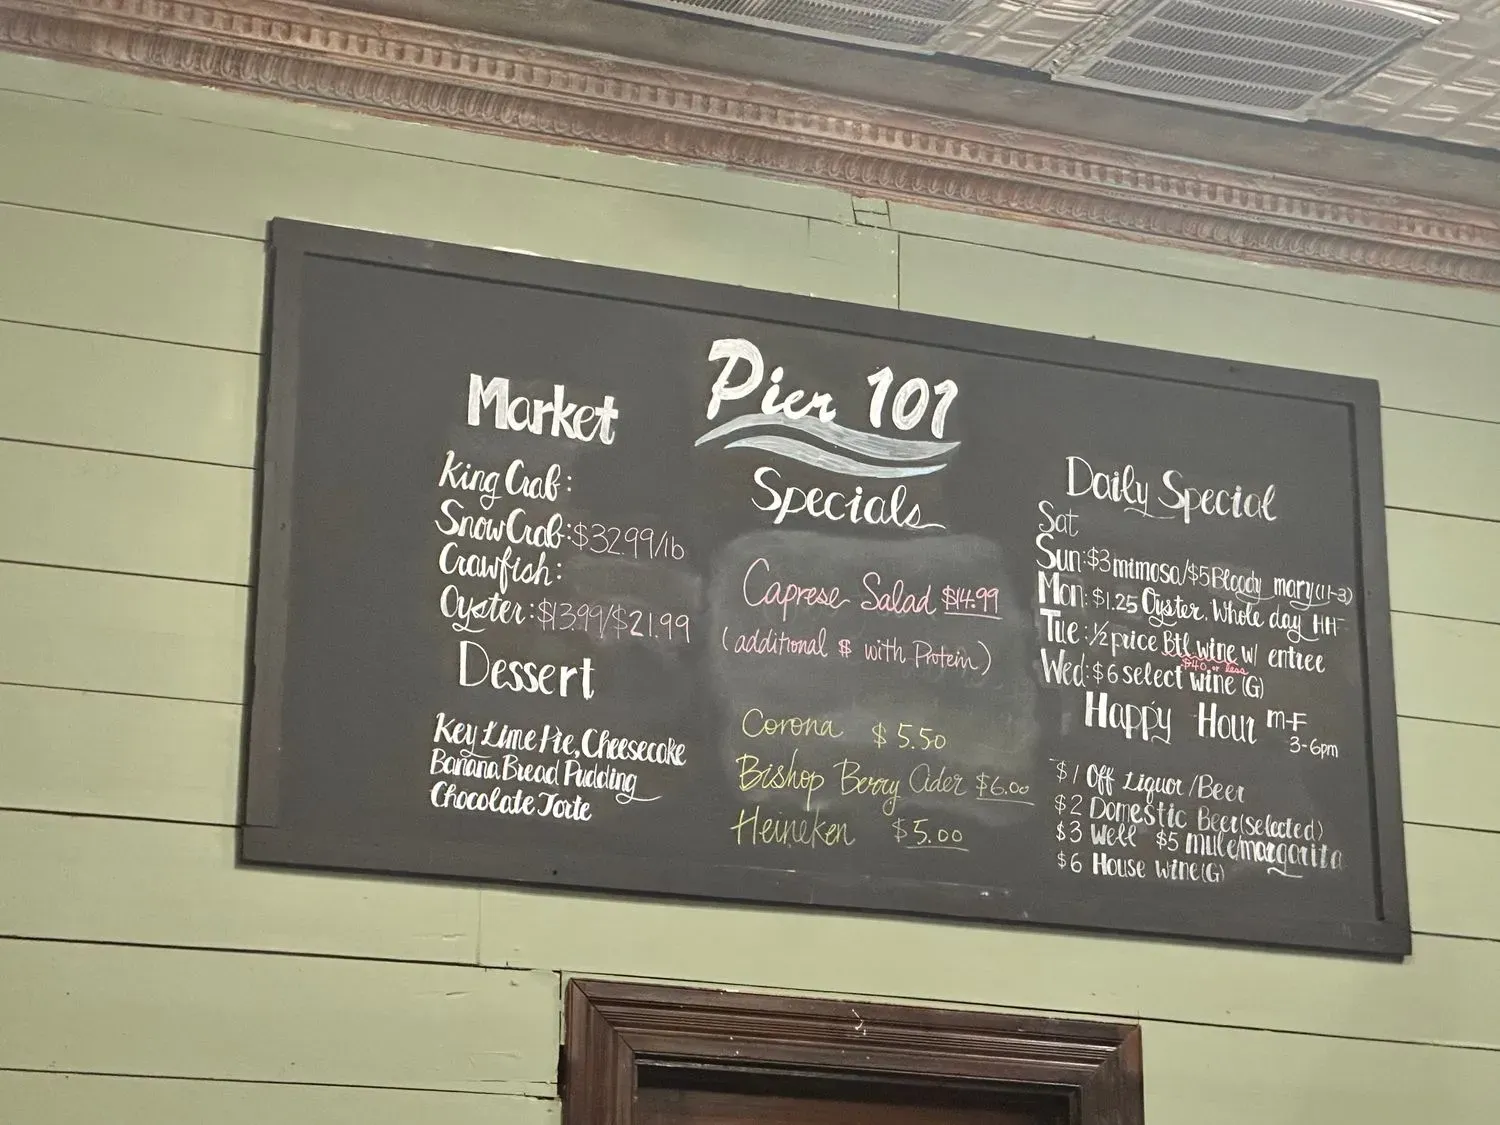 Pier 101
Market
King Crab:
Snow Crab: $32.99/lb
Crawfish:
Oyster: $13.99/$21.99
Dessert
Key Lime Pie, Cheesecake
Banana Bread Pudding
Chocolate Torte
Specials
Caprese Salad $14.99
(additional $ with Protein)
Corona $5.50
Bishop Berry Cider $6.00
Heineken $5.00
Daily Special
Sat
Sun: $3 mimosa/$5 Bloody mary (11-3)
Mon: $1.25 Oyster. Whole day HH
Tue: 1/2 price Btl wine w/ entree
$40 or less
Wed: $6 select wine (G)
Happy Hour M-F
3-6pm
$1 Off Liquor/Beer
$2 Domestic Beer (selected)
$3 Well $5 mule/margarita
$6 House wine (G)